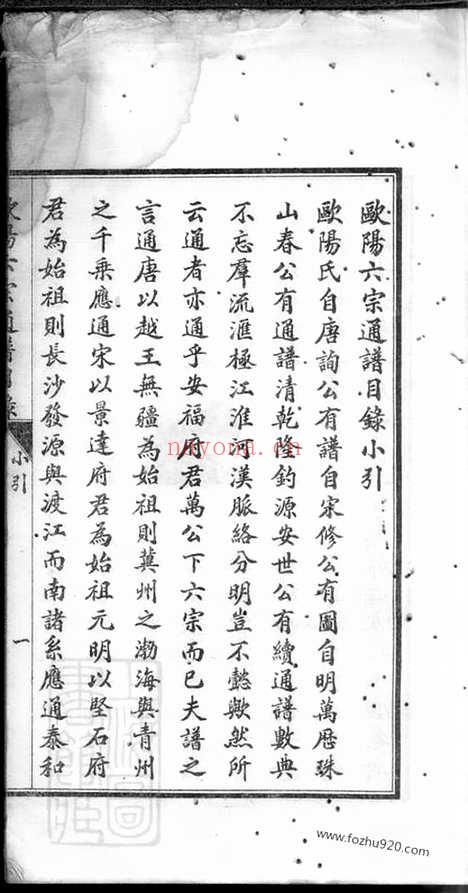 歐陽六宗通譜目錄小引
歐陽氏自唐詢公有譜自宋修公有圖自明萬歷珠
山春公有通譜清乾隆釣源安世公有續通譜數典
不忘羣流滙極江淮河漢脈絡分明豈不懿歟然所
云通者亦通乎安福府君萬公下六宗而已夫譜之
言通唐以越王無疆為始祖則冀州之渤海與青州
之千乘應通宋以景達府君為始祖元明以堅石府
君為始祖則長沙發源與渡江而南諸系應通泰和
歐陽六宗通譜目錄
小引
一
nayona.cn
www.fozhu920.com